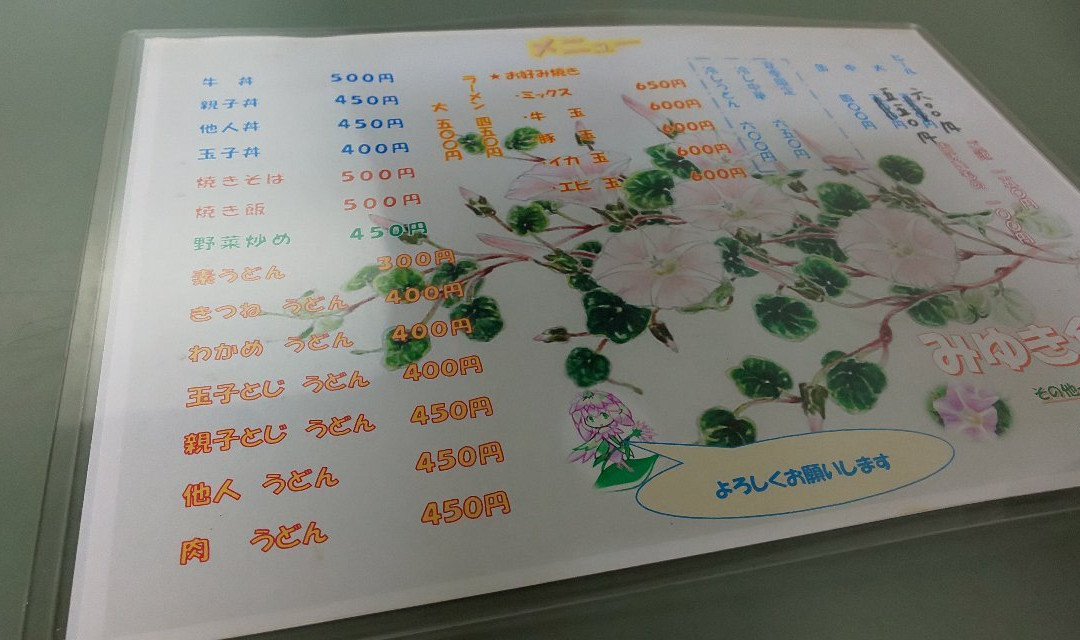 メニュー
牛 丼 500円
親子丼 450円
他人丼 450円
玉子丼 400円
焼きそば 500円
焼き飯 500円
野菜炒め 450円
素うどん 300円
きつね うどん 400円
わかめ うどん 400円
玉子とじ うどん 400円
親子とじ うどん 450円
他人 うどん 450円
肉 うどん 450円
ラーメン 四五〇円
大 五〇〇円
★お好み焼き
・ミックス 650円
・牛 玉 600円
・豚 玉 600円
・イカ 玉 600円
・エビ 玉 600円
冷しうどん 六〇〇円
六五〇円
ビール
大 六〇〇円
中 五五〇円
みゆき
その他
よろしくお願いします